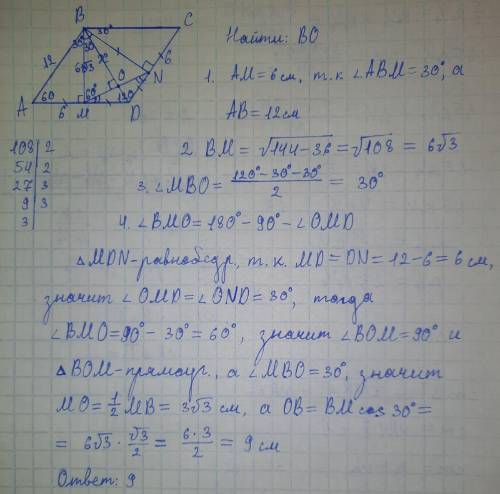 B
C
30°
30°
30
?°
12
6√3
6
N
O
60
60°
120°
A
6
M
D
Найти: BO
1. AM = 6 см, т.к ∠ABM = 30°, а
AB = 12 см
108 | 2
54 | 2
27 | 3
9 | 3
3
2. BM = √144-36 = √108 = 6√3
3. ∠MBO = (120°-30°-30°)/2 = 30°
4. ∠BMO = 180° - 90° - ∠OMD
△MDN-равнобедр, т.к. MD = DN = 12-6 = 6 см,
значит ∠OMD = ∠OND = 30°, тогда
∠BMO = 90° - 30° = 60°, значит ∠BOM = 90° и
△BOM-прямоуг., а ∠MBO = 30°, значит
MO = 1/2 MB = 3√3 см, а OB = BM cos 30° =
= 6√3 · √3/2 = 6·3/2 = 9 см
Ответ: 9